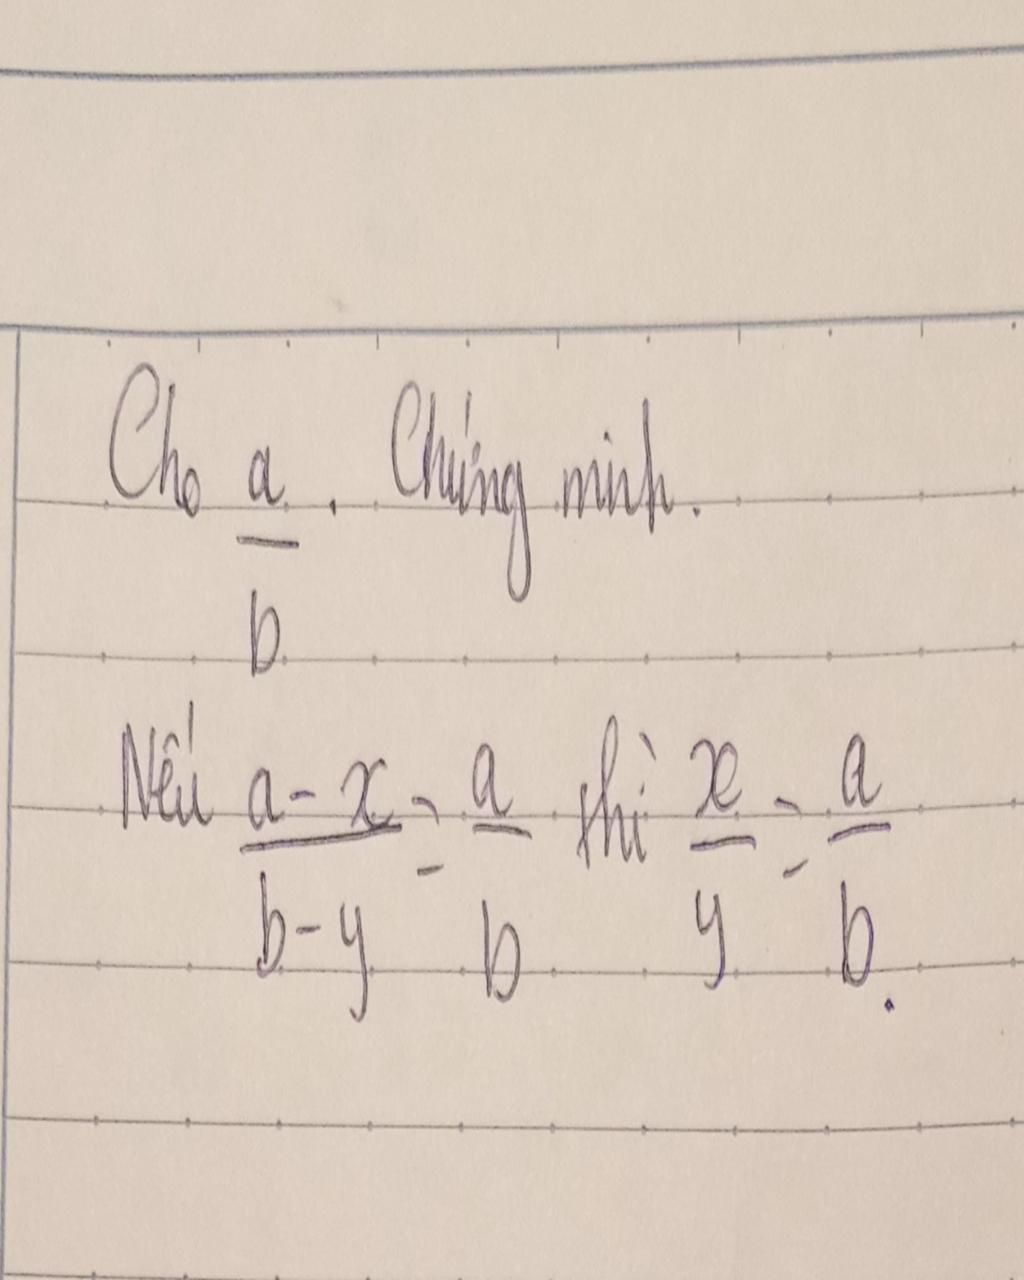 Cho a/b. Chứng minh.
Nếu a-x/b-y = a/b thì x/y = a/b.